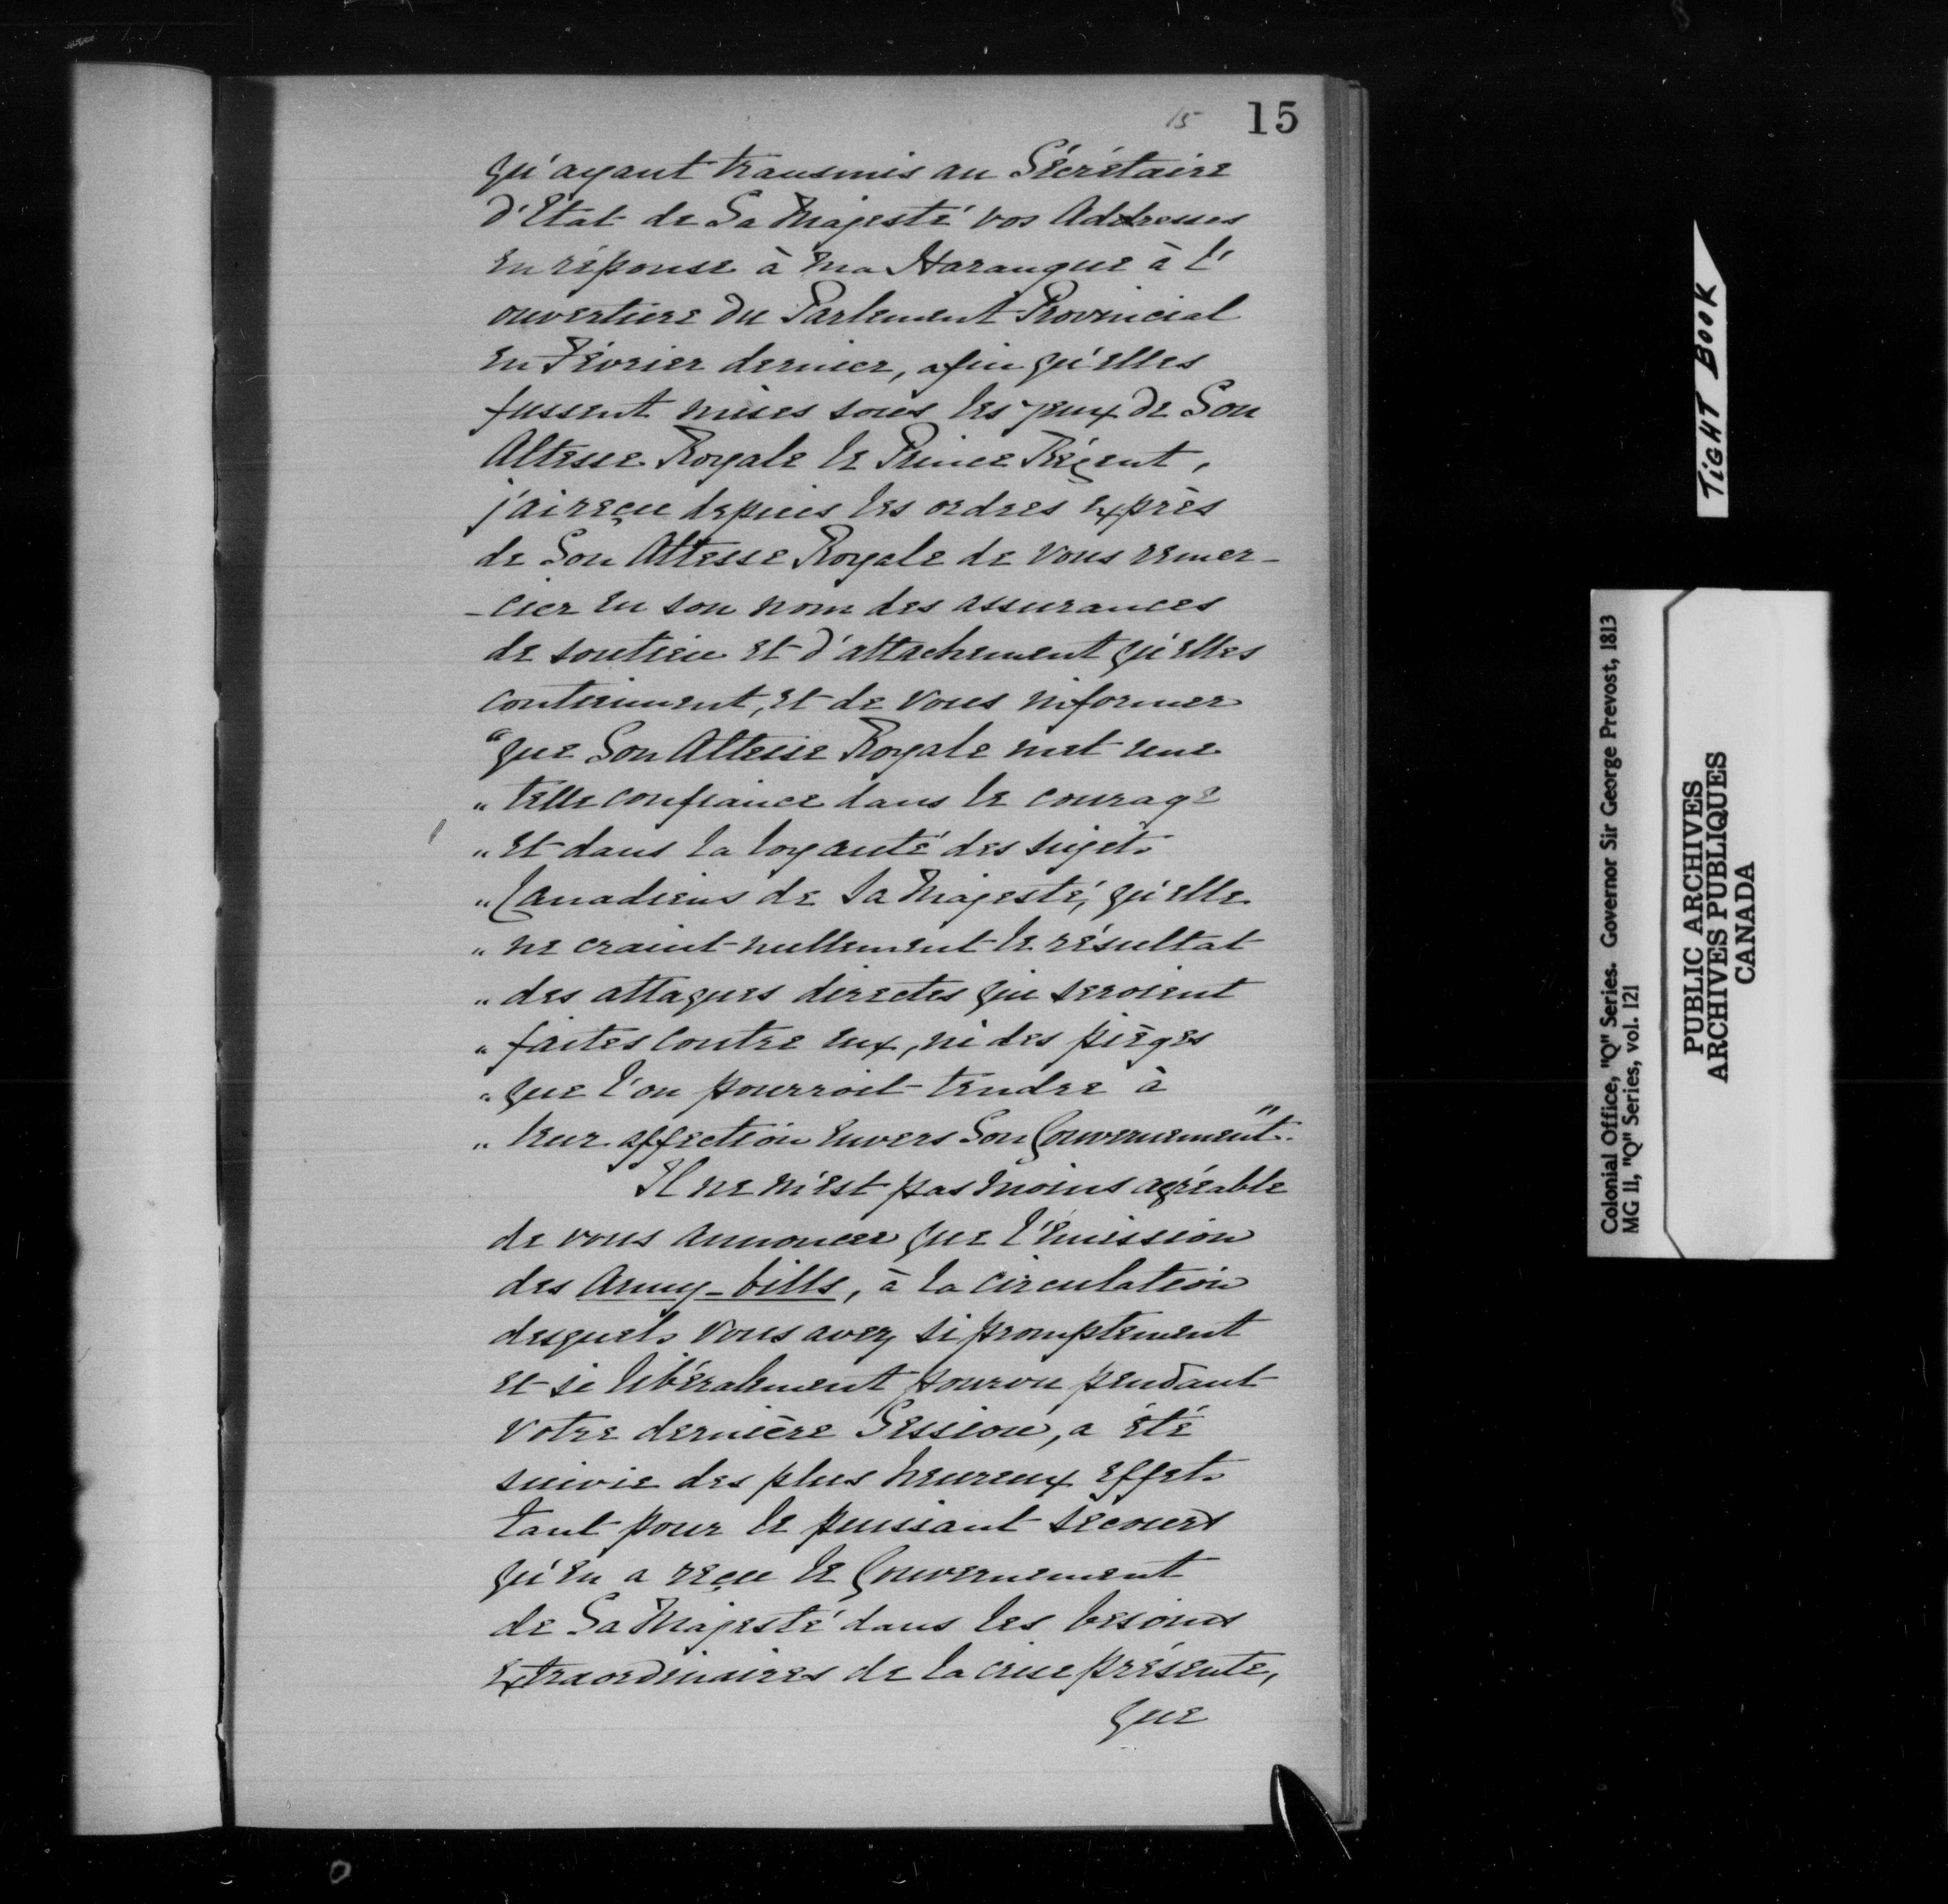 15 15
qu'ayant transmis au Sécrétaire
d'Etat de Sa Majesté vos Addresses
en réponse à ma Harangue à l'
ouverture du Parlement Provincial
en Février dernier, afin qu'elles
fussent mises sous les yeux de Son
Altesse Royale le Prince Régent,
j'ai reçu depuis les ordres exprès
de Son Altesse Royale de vous remer-
-cier en son nom des assurances
de soutien et d'attachement qu'elles
contiennent, et de vous informer
"que Son Altesse Royale met une
" telle confiance dans le courage
" et dans la loyauté des sujets
" Canadiens de Sa Majesté, qu'elle
" ne craint nullement le résultat
" des attaques directes qui seroient
" faites contre eux, ni des pièges
" que l'on pourroit tendre à
" leur affection envers Son Gouvernement".
Il ne m'est pas moins agréable
de vous annoncer que l'émission
des Army-bills, à la circulation
desquels vous avez si promptement
et si libéralement pourvu pendant
votre dernière Session, a été
suivie des plus heureux effets
tant pour le puissant sécours
qu'en a reçu le Gouvernement
de Sa Majesté dans les besoins
extraordinaires de la crise présente,
que
TIGHT BOOK
Colonial Office, "Q" Series. Governor Sir George Prevost, 1813
MG 11, "Q" Series, vol. 121
PUBLIC ARCHIVES
ARCHIVES PUBLIQUES
CANADA